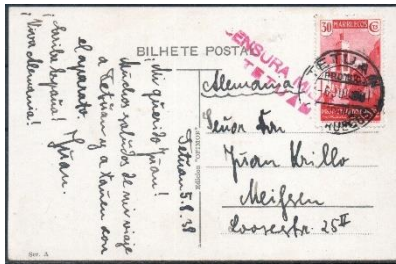 BILHETE POSTAL
CENSURA
TETUAN
30 MARRUECOS Cs
TETUAN
Alemania
Señor Don
Juan Krillo
Meißen
Loosestr. 25 II
Tetuan 5.8.38
¡Mi querido Juan!
Muchos saludos de mi viaje
a Tetuan y a
el aparato.
Juan.
¡Arriba España!
¡Viva Alemania!
Ser. A